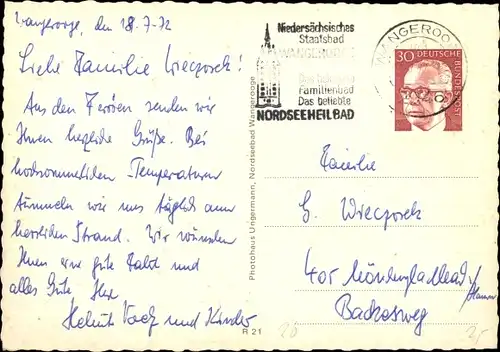 Wangerooge, den 18.7.72
Liebe Familie Wieczorek!
Aus den Ferien senden wir
Ihnen herzliche Grüße. Bei
hochsommerlichen Temperaturen
tummeln wir uns täglich am
herrlichen Strand. Wir wünschen
Ihnen eine gute Fahrt und
alles Gute Ihre
Helmut und Kinder
Photohaus Ungermann, Nordseebad Wangerooge
R 21
Niedersächsisches
Staatsbad
WANGEROOGE
Das
Familienbad
Das beliebte
NORDSEEHEILBAD
WANGEROOGE
30 DEUTSCHE BUNDESPOST
Familie
G. Wieczorek
405 Mönchengladbach/
Backesweg